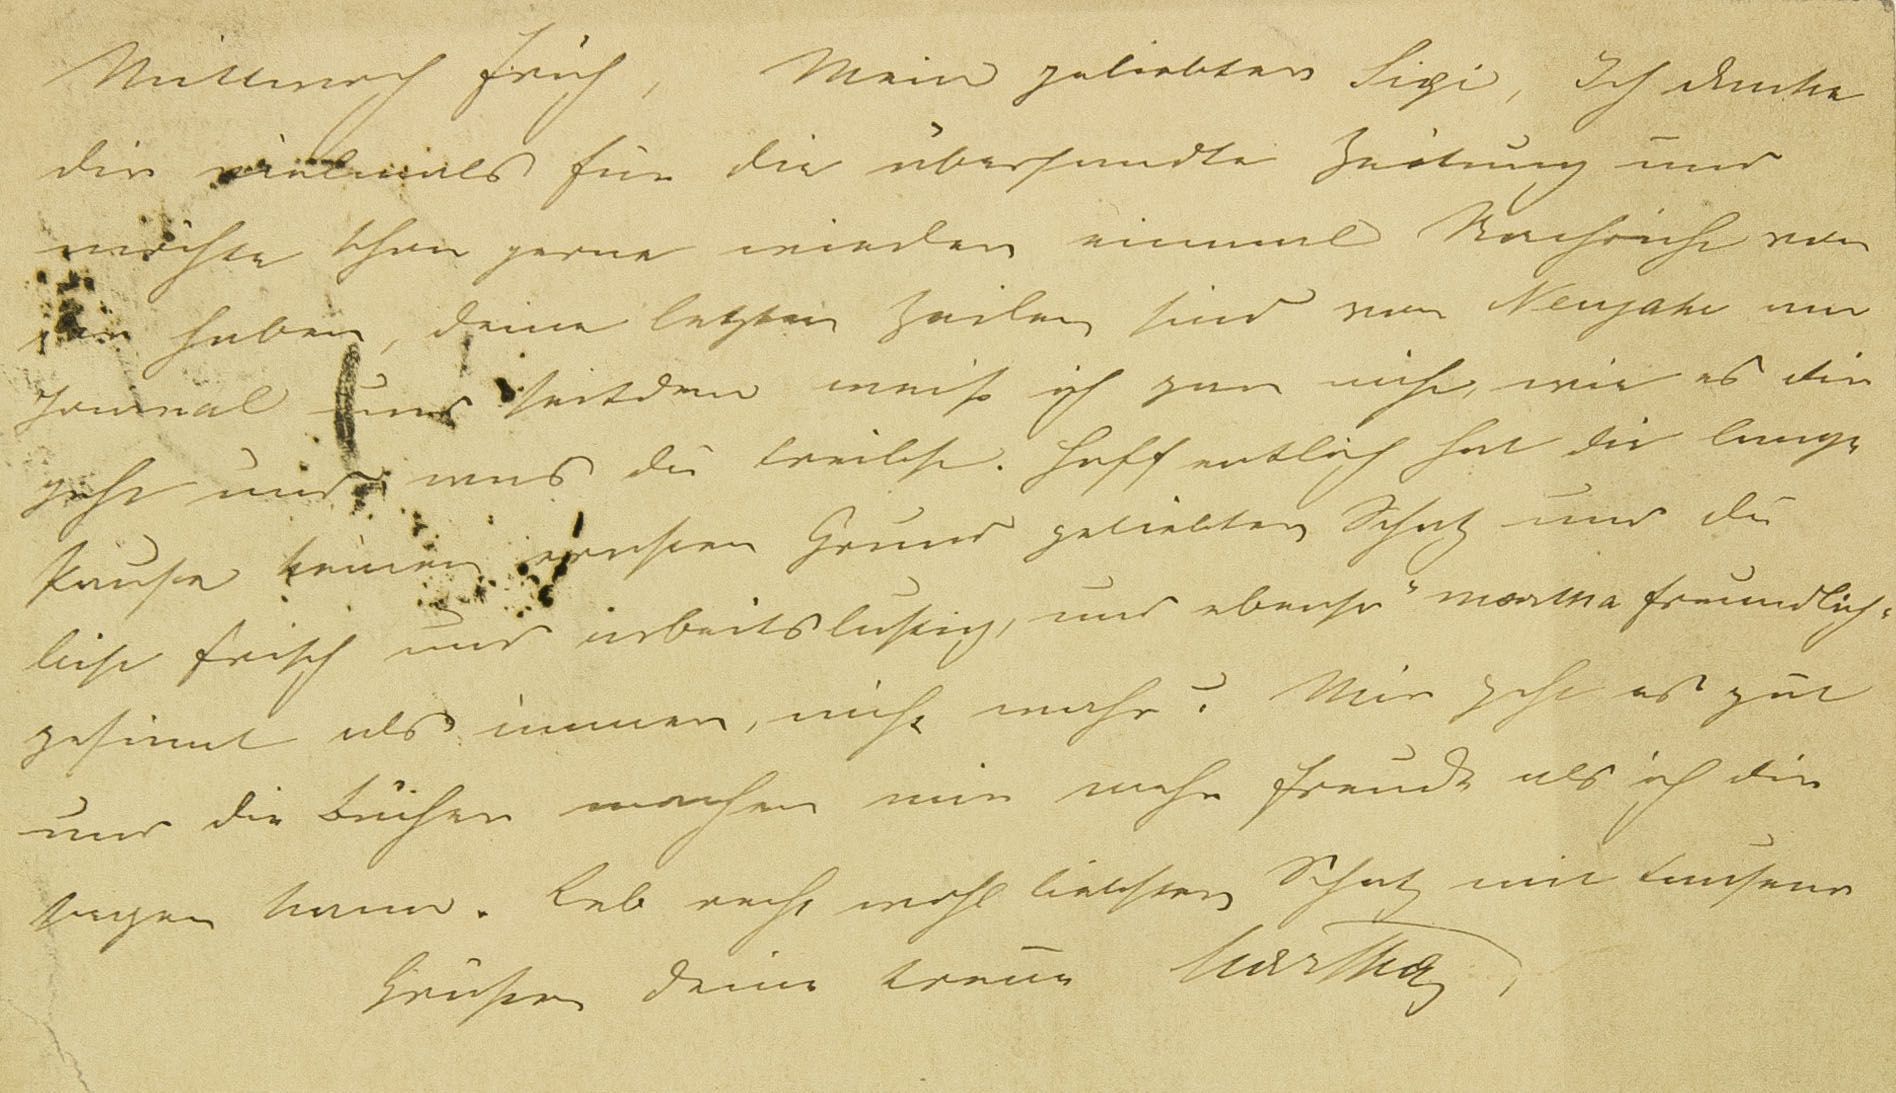 Mittwoch früh, Mein geliebter Sigi, Ich danke
dir vielmals für die übersandte Zeitung und
möchte schon gerne wieder einmal Nachricht von
dir haben, deine letzten Zeilen sind vom Neujahr
Journal und seitdem weiß ich gar nicht, wie es dir
geht und was du treibst. Hoffentlich hat die lange
Pause keinen ernsten Grund geliebter Schatz und du
bist frisch und arbeitslustig, und ebenso "Martha freundlich"
gesinnt als immer, nicht wahr? Mir geht es gut
und die Bücher machen mir mehr Freude als ich dir
sagen kann. Leb recht wohl liebster Schatz mit tausend
Grüßen deine treue Martha,